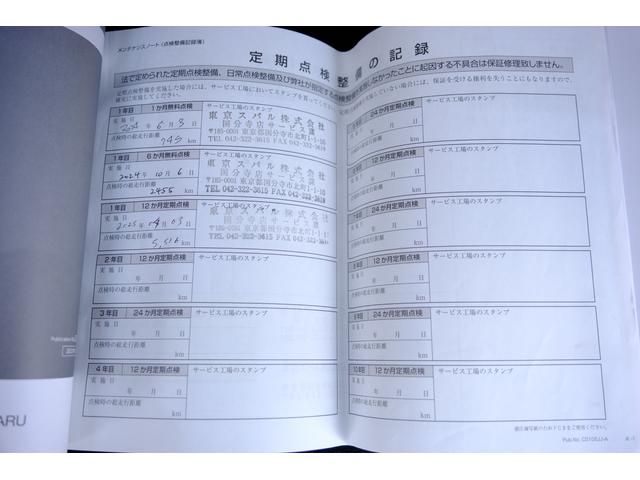 メンテナンスノート（点検整備記録簿）
定期点検整備の記録
法で定められた定期点検整備、日常点検整備及び弊社が指定する点検整備を実施しなかったことに起因する不具合は保証修理致しません。
定期点検を実施した場合には、サービス工場においてスタンプを貰ってください。
確実に実施してください。
実施していない場合には、保証を受ける権利を失うこともありますので、
1年目 1か月無料点検 サービス工場のスタンプ
実施日
2024年 6月 3日
点検時の総走行距離
745 km
東京スバル株式会社
国分寺店サービス課
〒185-0001 東京都国分寺市北町1-1-10
TEL 042-322-3615 FAX 042-322-3612
1年目 6か月無料点検 サービス工場のスタンプ
実施日
2024年 10月 6日
点検時の総走行距離
2455 km
東京スバル株式会社
国分寺店サービス課
〒185-0001 東京都国分寺市北町1-1-10
TEL 042-322-3615 FAX 042-322-3612
1年目 12か月定期点検 サービス工場のスタンプ
実施日
2025年 04月 03日
点検時の総走行距離
km
東京スバル株式会社
国分寺店サービス課
〒185-0001 東京都国分寺市北町1-1-10
TEL 042-322-3615 FAX 042-322-3612
2年目 12か月定期点検 サービス工場のスタンプ
実施日
年 月 日
点検時の総走行距離
km
3年目 24か月定期点検 サービス工場のスタンプ
実施日
年 月 日
点検時の総走行距離
km
4年目 12か月定期点検 サービス工場のスタンプ
実施日
年 月 日
点検時の総走行距離
km
24か月定期点検 サービス工場のスタンプ
実施日
年 月 日
点検時の総走行距離
km
12か月定期点検 サービス工場のスタンプ
実施日
年 月 日
点検時の総走行距離
km
7年目 24か月定期点検 サービス工場のスタンプ
実施日
年 月 日
点検時の総走行距離
km
12か月定期点検 サービス工場のスタンプ
実施日
年 月 日
点検時の総走行距離
km
24か月定期点検 サービス工場のスタンプ
実施日
年 月 日
点検時の総走行距離
km
10年目 12か月定期点検 サービス工場のスタンプ
実施日
年 月 日
点検時の総走行距離
km
ARU